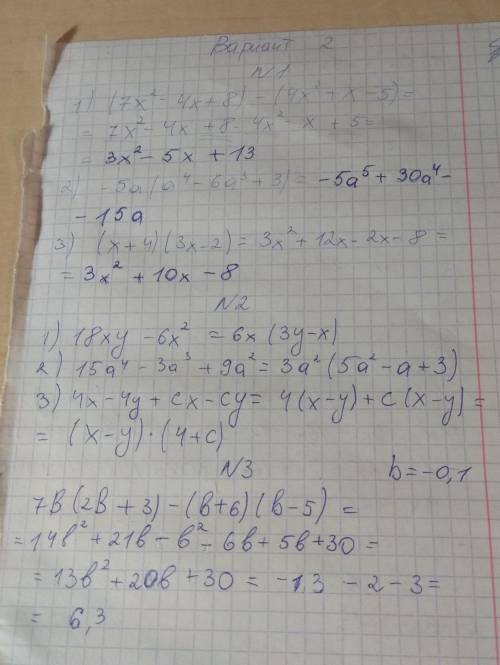 Вариант 2
N1
1) (7x² - 4x + 8) - (4x² + x - 5) =
= 7x² - 4x + 8 - 4x² - x + 5 =
= 3x² - 5x + 13
2) -5a (a⁴ - 6a³ + 3) = -5a⁵ + 30a⁴ -
- 15a
3) (x + 4) (3x - 2) = 3x² + 12x - 2x - 8 =
= 3x² + 10x - 8
N2
1) 18xy - 6x² = 6x (3y - x)
2) 15a⁴ - 3a³ + 9a² = 3a² (5a² - a + 3)
3) 4x - 4y + cx - cy = 4 (x - y) + c (x - y) =
= (x - y) · (4 + c)
N3 b = -0,1
7b (2b + 3) - (b + 6) (b - 5) =
= 14b² + 21b - b² - 6b + 5b + 30 =
= 13b² + 20b + 30 = -1,3 - 2 - 3 =
= 6,3